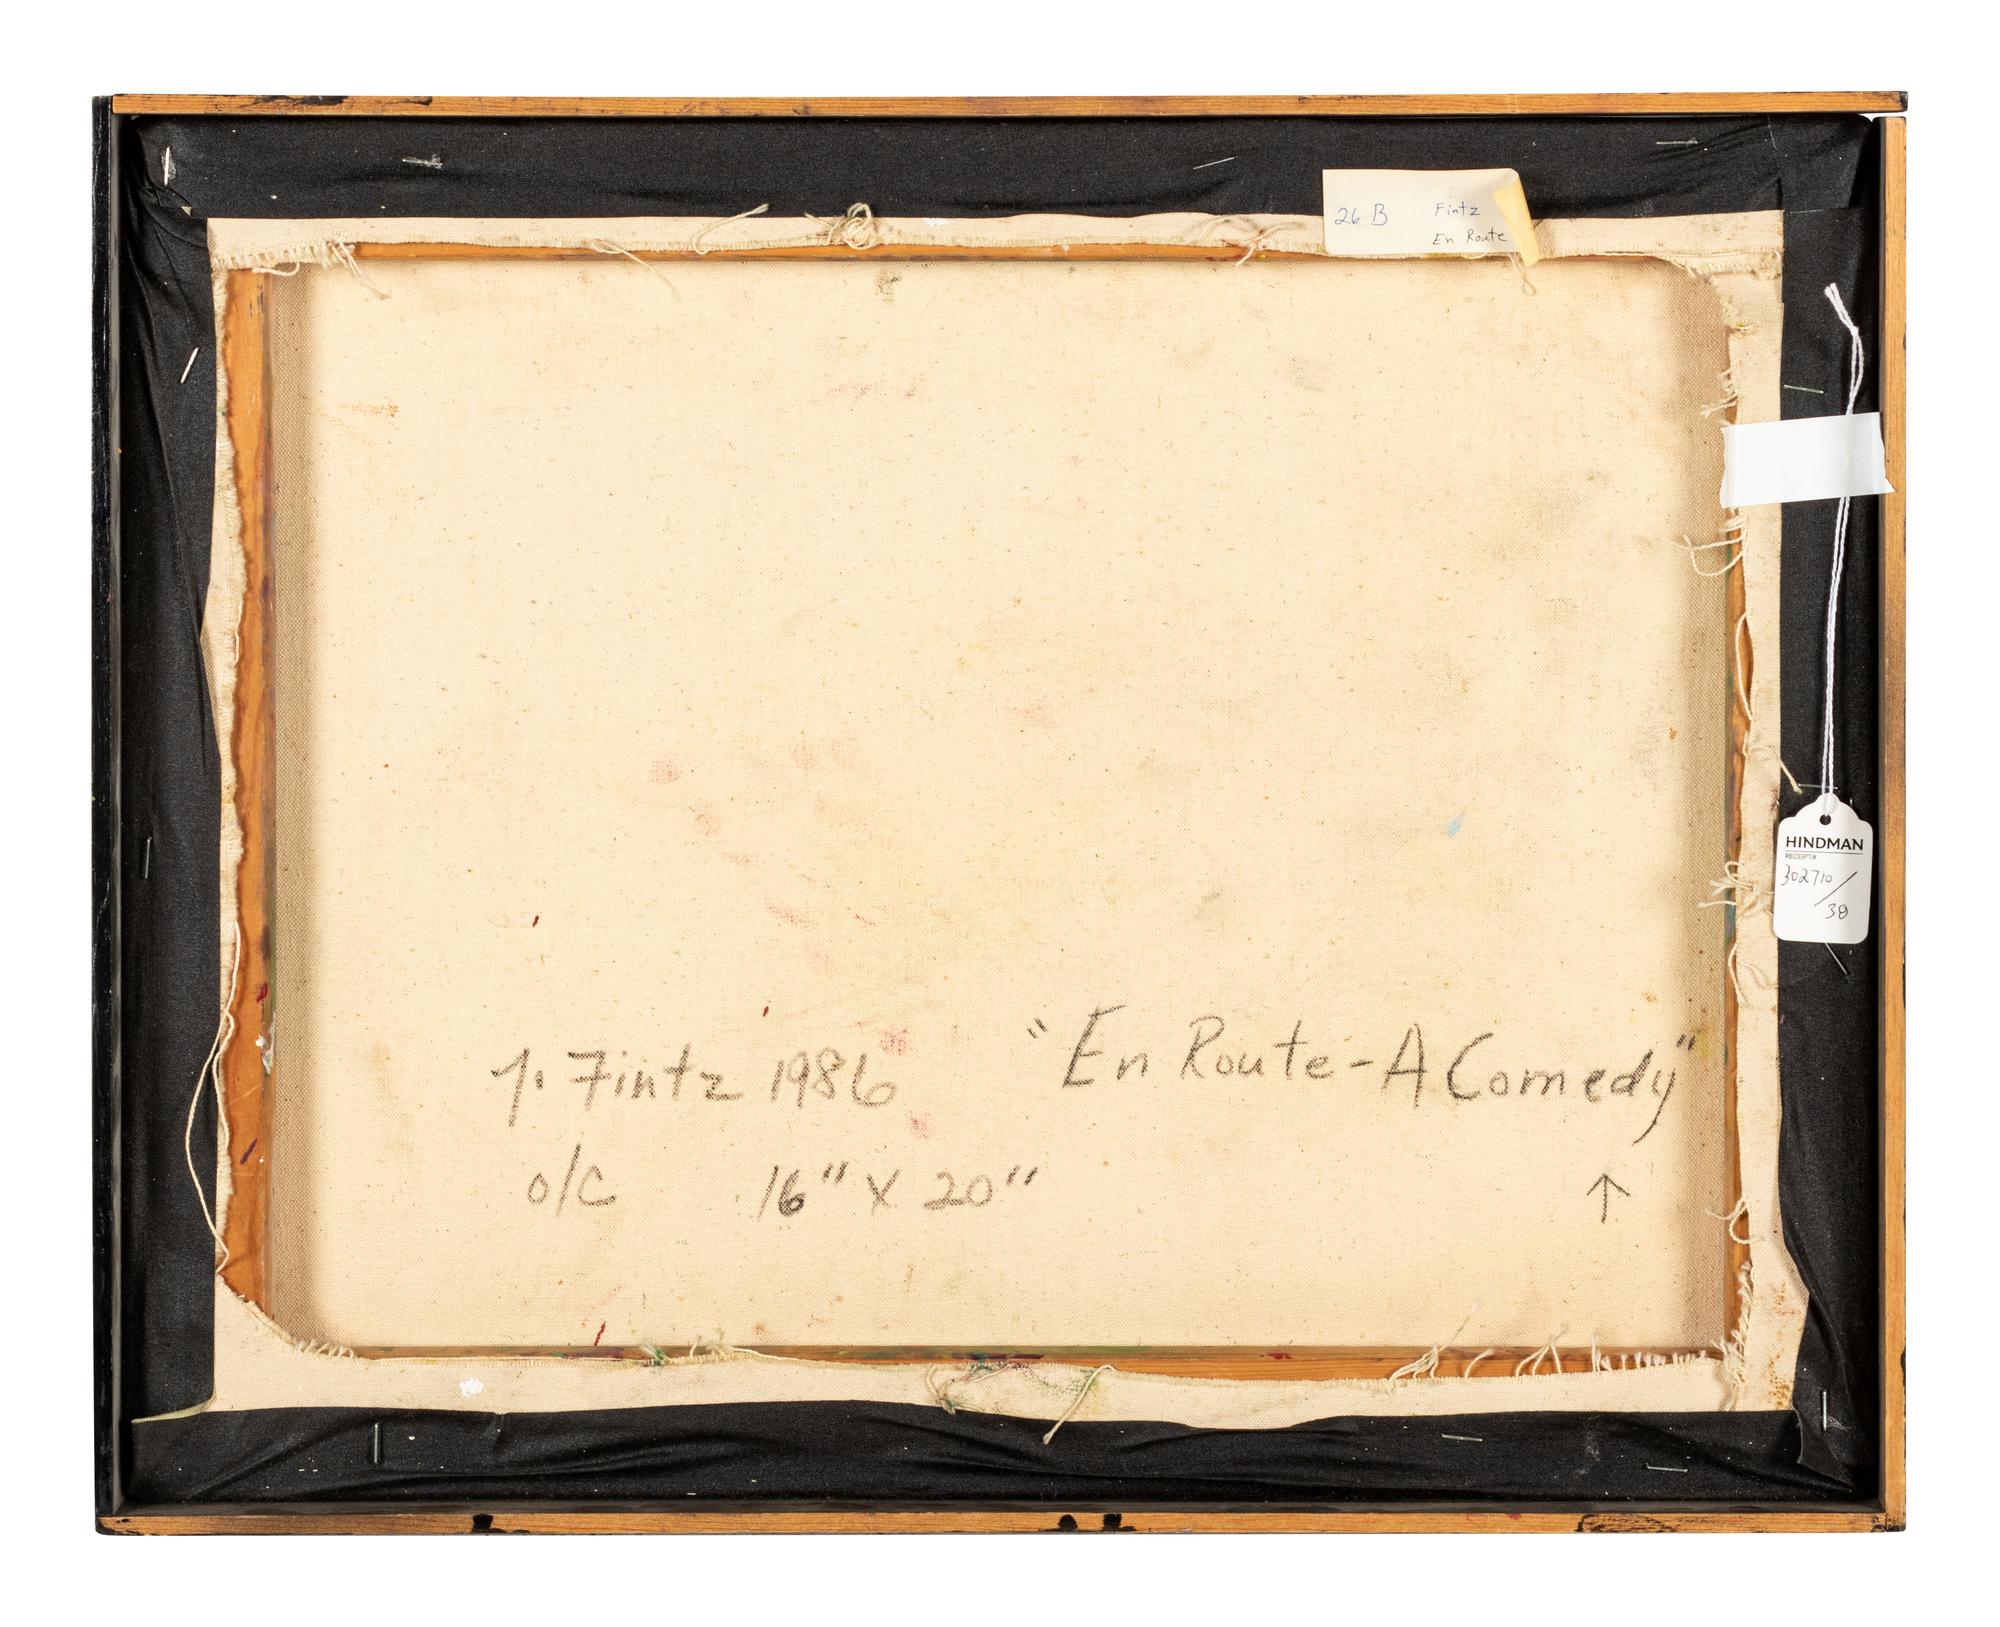 26 B Fintz
En Route
HINDMAN
RECEIPT#
302710/
38
J. Fintz 1986 "En Route-A Comedy"
o/c 16" X 20" ↑